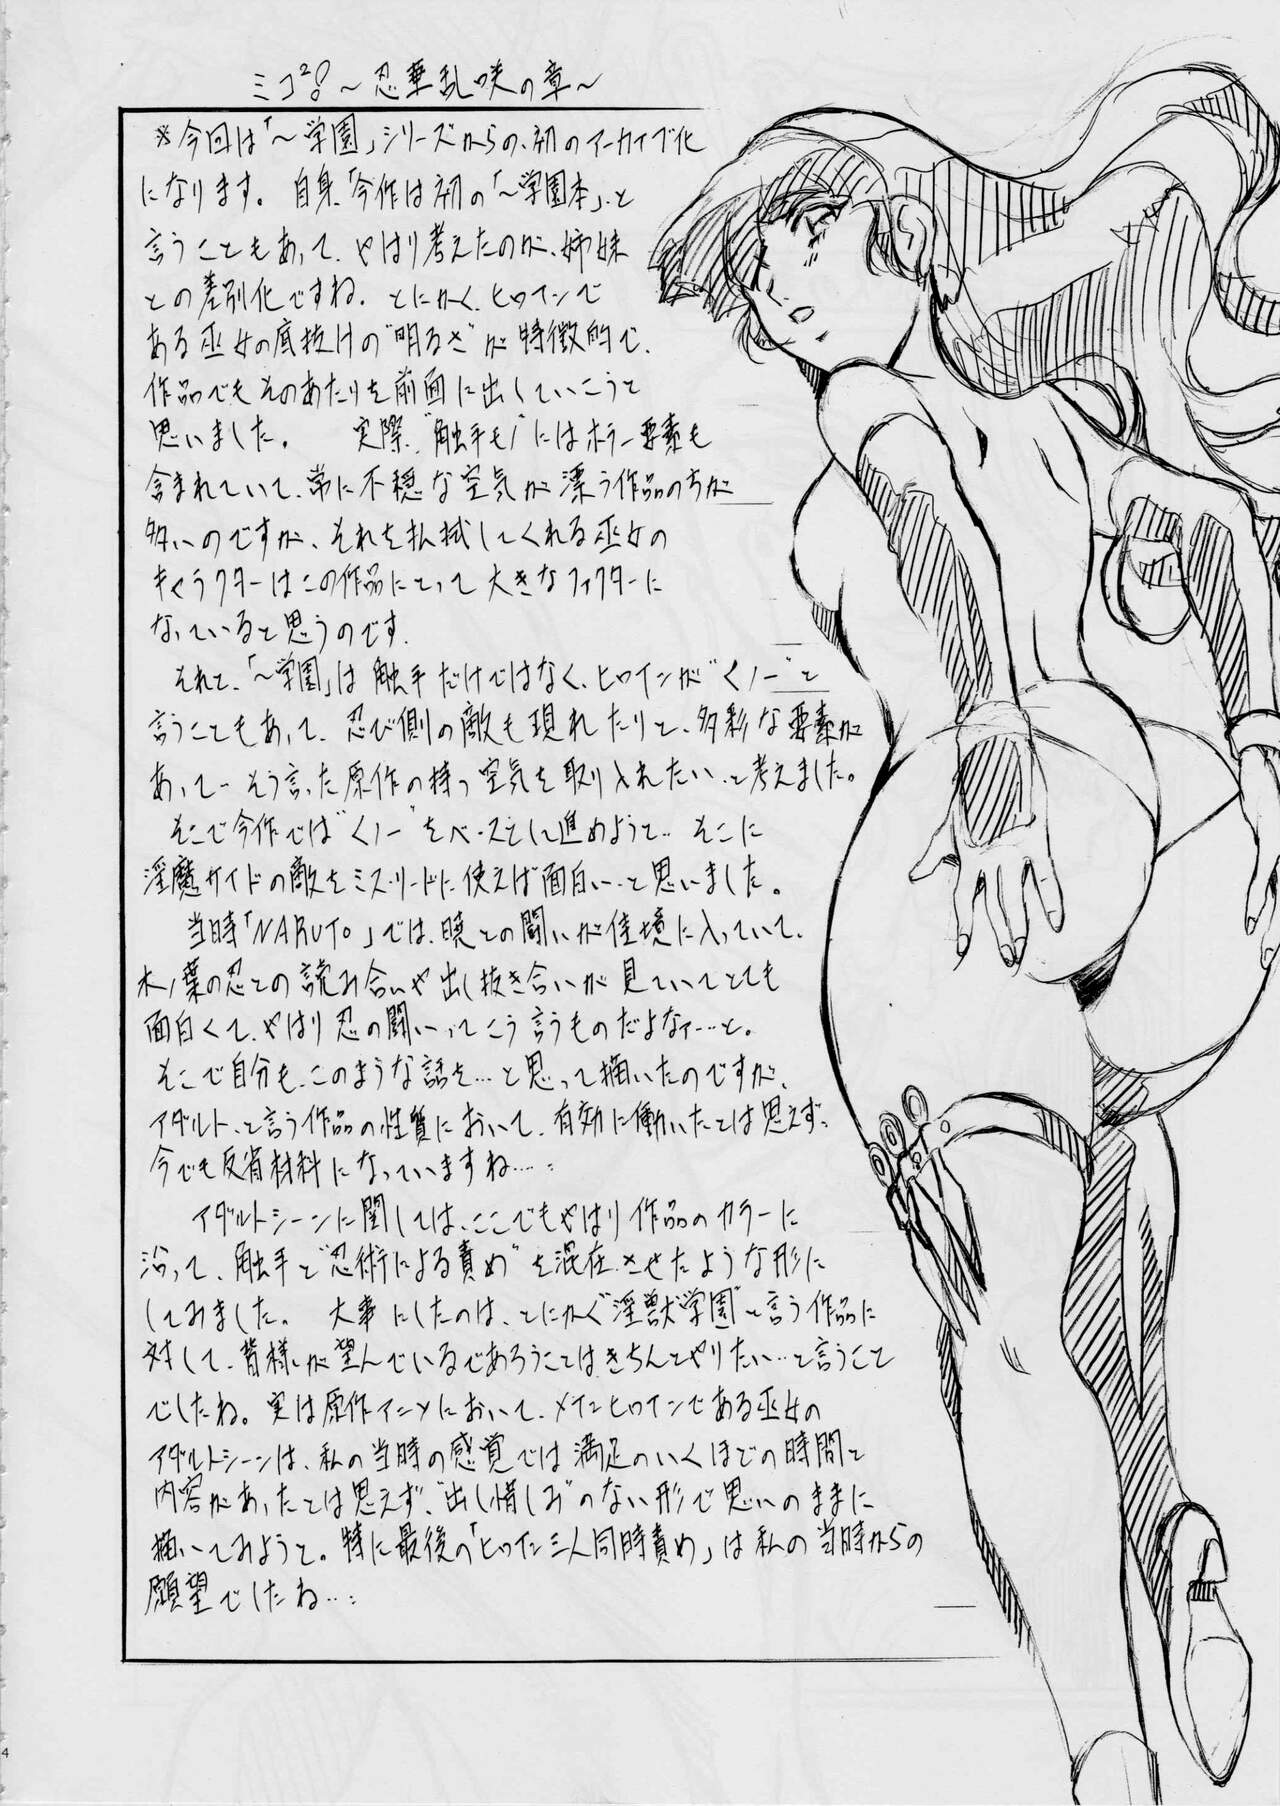 ミコ²!～忍華乱咲の章～
※今回は「～学園」シリーズからの、初のアーカイブ化
になります。 自身、「今作は初の「～学園本」、と
言うこともあって、やはり考えたのが、姉妹
との差別化ですね。とにかく、ヒロインで
ある巫女の底抜けの“明るさ”が特徴的で、
作品でもそのあたりを前面に出していこうと
思いました。 実際、“触手モノ”にはホラー要素も
含まれていて、常に不穏な空気が漂う作品の方が
多いのですが、それを払拭してくれる巫女の
キャラクターはこの作品にとって大きなファクターに
なっていると思うのです。
それと、「～学園」は触手だけではなく、ヒロインが“くノ一”と
言うこともあって、忍び側の敵も現れたりと、多彩な要素が
あって…そう言った原作の持つ空気を取り入れたい…と考えました。
そこで今作では“くノ一”をベースとして進めようと…そこに
淫魔サイドの敵をミス・リードに使えば面白い…と思いました。
当時「NARUTO」では、暁との闘いが佳境に入っていて、
木ノ葉の忍との読み合いや出し抜き合いが見ていてとても
面白くて、やはり忍の闘いってこう言うものだよなァ…と。
そこで自分も、このような話を…と思って描いたのですが、
アダルト、と言う作品の性質において、有効に働いたとは思えず、
今でも反省材料になっていますね…。
アダルトシーンに関しては、ここでもやはり作品のカラーに
沿って、触手と“忍術による責め”を混在させたような形に
してみました。 大事にしたのは、とにかく“淫獣学園”と言う作品に
対して、皆様が望んでいるであろうことはきちんとやりたい…と言うこと
でしたね。実は原作アニメにおいて、メインヒロインである巫女の
アダルトシーンは、私の当時の感覚では満足のいくほどの時間と
内容があったとは思えず、“出し惜しみ”のない形で思いのままに
描いてみようと。特に最後の「ヒロイン三人同時責め」は私の当時からの
願望でしたね…。
4